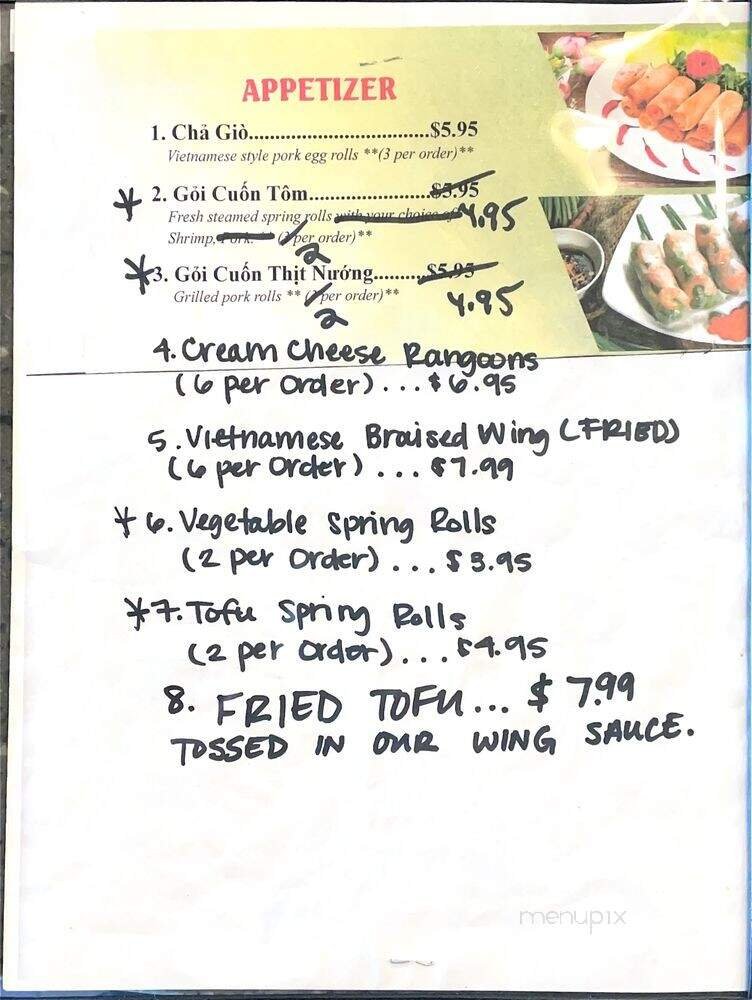 APPETIZER
1. Chả Giò..................................$5.95
Vietnamese style pork egg rolls **(3 per order)**
* 2. Gỏi Cuốn Tôm.......................$5.95 4.95
Fresh steamed spring rolls with your choice of
Shrimp, Pork. (2 per order)**
*3. Gỏi Cuốn Thịt Nướng..........$5.95 4.95
Grilled pork rolls ** (2 per order)**
4. Cream Cheese Rangoons
(6 per Order)...$6.95
5. Vietnamese Braised Wing (FRIED)
(6 per Order)...$7.99
* 6. Vegetable Spring Rolls
(2 per Order)...$3.95
*7. Tofu Spring Rolls
(2 per Order)...$4.95
8. FRIED TOFU...$7.99
TOSSED IN OUR WING SAUCE.
menupix